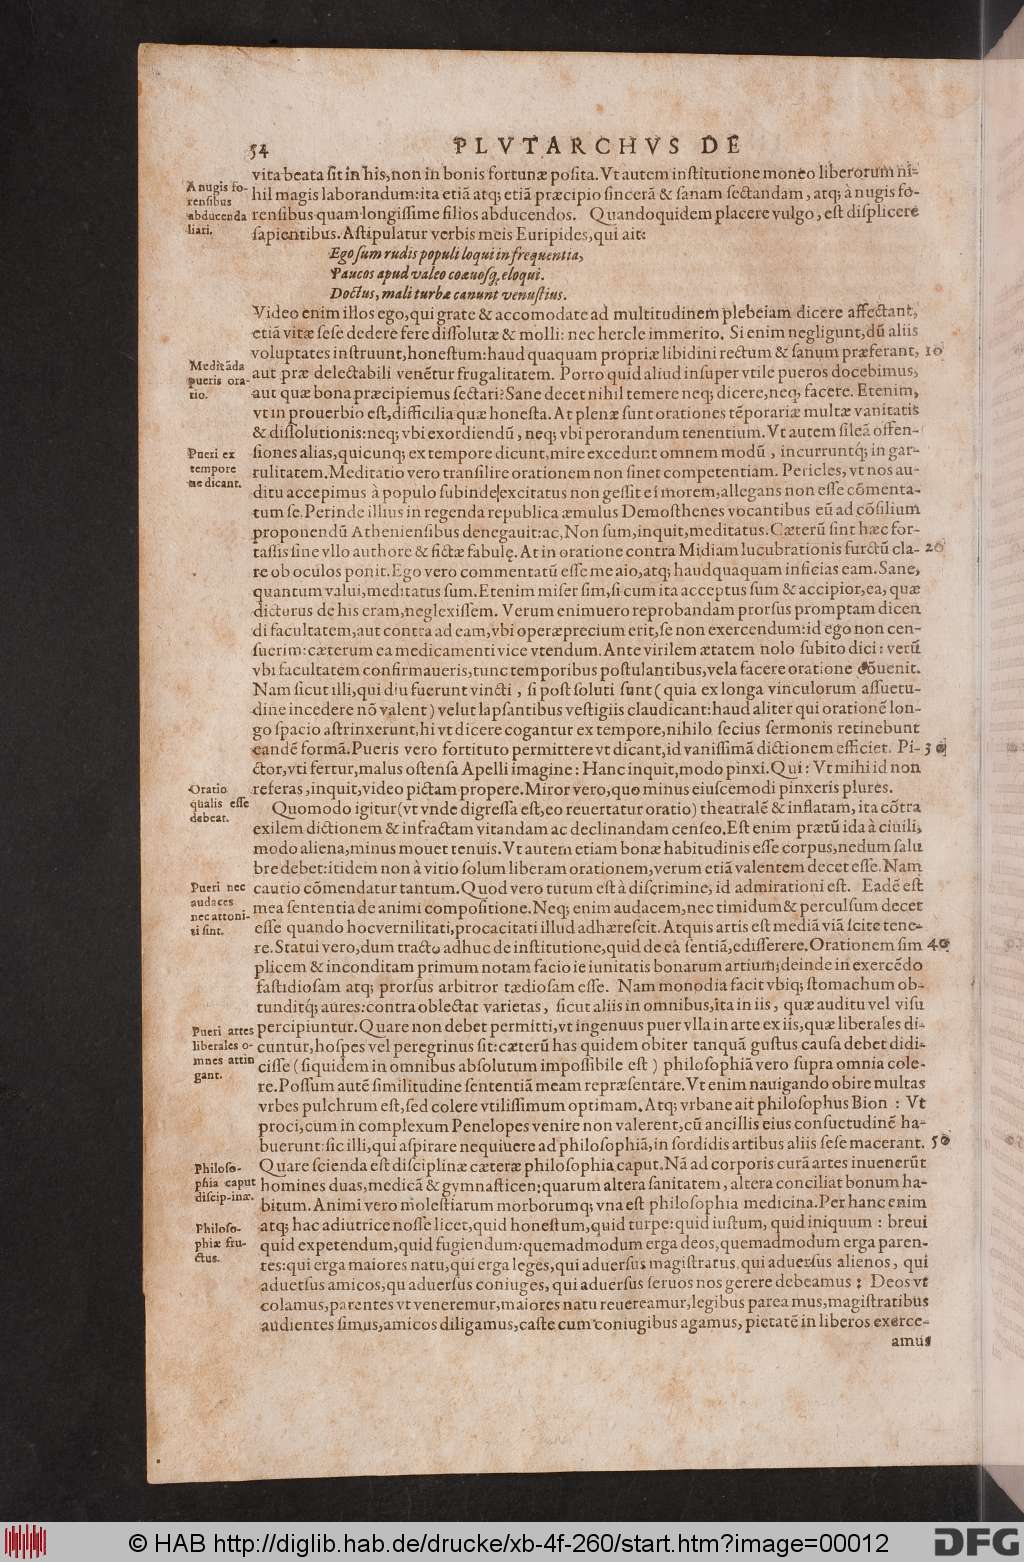 54
PLVTARCHVS DE
vita beata sit in his, non in bonis fortunæ posita. Vt autem institutione moneo liberorum ni-
hil magis laborandum: ita etiã atq; etiã præcipio sincerã & sanam sectandam, atq; à nugis fo-
rensibus quam longissime filios abducendos. Quandoquidem placere vulgo, est displicere
sapientibus. Astipulatur verbis meis Euripides, qui ait:
A nugis fo-
rensibus
abducenda
liari.
Ego sum rudis populi loqui in frequentia,
Paucos apud valeo coæuosq; eloqui.
Doctus, mali turbæ canunt venustius.
Video enim illos ego, qui grate & accomodate ad multitudinem plebeiam dicere affectant,
etiã vitæ sese dedere fere dissolutæ & molli: nec hercle immerito. Si enim negligunt, dũ aliis
voluptates instruunt, honestum: haud quaquam propriæ libidini rectum & sanum præferant, 10
aut præ delectabili venẽtur frugalitatem. Porro quid aliud insuper vtile pueros docebimus,
aut quæ bona præcipiemus sectari? Sane decet nihil temere neq; dicere, neq, facere. Etenim,
vt in prouerbio est, difficilia quæ honesta. At plenæ sunt orationes tẽporariæ multæ vanitatis
& dissolutionis: neq; vbi exordiendũ, neq; vbi perorandum tenentium. Vt autem sileã offen-
Meditãda
pueris ora-
tio.
siones alias, quicunq; ex tempore dicunt, mire excedunt omnem modũ, incurruntq́; in gar-
rulitatem. Meditatio vero transilire orationem non sinet competentiam. Pericles, vt nos au-
ditu accepimus à populo subinde excitatus non gessit ei morem, allegans non esse cõmenta-
Pueri ex
tempore
ne dicant.
tum se. Perinde illius in regenda republica æmulus Demosthenes vocantibus eũ ad cõsilium
proponendũ Atheniensibus denegauit: ac, Non sum, inquit, meditatus. Cæterũ sint hæc for-
tassis sine vllo authore & fictæ fabulę. At in oratione contra Midiam lucubrationis fructũ cla- 20
re ob oculos ponit. Ego vero commentatũ esse me aio, atq; haudquaquam inficias eam. Sane,
quantum valui, meditatus sum. Etenim miser sim, si cum ita acceptus sum & accipior, ea, quæ
dicturus de his eram, neglexissem. Verum enimuero reprobandam prorsus promptam dicen
di facultatem, aut contra ad eam, vbi operæprecium erit, se non exercendum: id ego non cen-
suerim: cæterum ea medicamenti vice vtendum. Ante virilem ætatem nolo subito dici: verũ
vbi facultatem confirmaueris, tunc temporibus postulantibus, vela facere oratione cõuenit.
Nam sicut illi, qui diu fuerunt vincti, si post soluti sunt (quia ex longa vinculorum assuetu-
dine incedere nõ valent) velut lapsantibus vestigiis claudicant: haud aliter qui orationẽ lon-
go spacio astrinxerunt, hi vt dicere cogantur ex tempore, nihilo secius sermonis retinebunt
eandẽ formã. Pueris vero fortituto permittere vt dicant, id vanissimã dictionem efficiet. Pi- 30
ctor, vti fertur, malus ostensa Apelli imagine: Hanc inquit, modo pinxi. Qui: Vt mihi id non
referas, inquit, video pictam propere. Miror vero, quo minus eiuscemodi pinxeris plures.
Oratio
qualis esse
debeat.
Quomodo igitur (vt vnde digressa est, eo reuertatur oratio) theatralẽ & inflatam, ita cõtra
exilem dictionem & infractam vitandam ac declinandam censeo. Est enim prætũ ida à ciuili,
modo aliena, minus mouet tenuis. Vt autem etiam bonæ habitudinis esse corpus, nedum salu
bre debet: itidem non à vitio solum liberam orationem, verum etiã valentem decet esse. Nam
cautio cõmendatur tantum. Quod vero tutum est à discrimine, id admirationi est. Eadẽ est
mea sententia de animi compositione. Neq; enim audacem, nec timidum & perculsum decet
Pueri nec
audaces
nec attoni-
ti sint.
esse quando hoc vernilitati, procacitati illud adhærescit. Atquis artis est mediã viã scite tene-
re. Statui vero, dum tracto adhuc de institutione, quid de ea sentiã, edisserere. Orationem sim 40
plicem & inconditam primum notam facio ieiunitatis bonarum artium; deinde in exercẽdo
fastidiosam atq; prorsus arbitror tædiosam esse. Nam monodia facit vbiq; stomachum ob-
tunditq́; aures: contra oblectat varietas, sicut aliis in omnibus, ita in iis, quæ auditu vel visu
percipiuntur. Quare non debet permitti, vt ingenuus puer vlla in arte ex iis, quæ liberales di-
cuntur, hospes vel peregrinus sit: cæterũ has quidem obiter tanquã gustus causa debet didi-
cisse (siquidem in omnibus absolutum impossibile est) philosophiã vero supra omnia cole-
Pueri artes
liberales o-
mnes attin
gant.
re. Possum autẽ similitudine sententiã meam repræsentare. Vt enim nauigando obire multas
vrbes pulchrum est, sed colere vtilissimum optimam. Atq; vrbane ait philosophus Bion: Vt
proci, cum in complexum Penelopes venire non valerent, cũ ancillis eius consuetudinẽ ha-
buerunt: sic illi, qui aspirare nequiuere ad philosophiã, in sordidis artibus aliis sese macerant. 50
Quare scienda est disciplinæ cæteræ philosophia caput. Nã ad corporis curã artes inuenerũt
homines duas, medicã & gymnasticen: quarum altera sanitatem, altera conciliat bonum ha-
bitum. Animi vero molestiarum morborumq; vna est philosophia medicina. Per hanc enim
Philoso-
phia caput
discip-inæ.
atq; hac adiutrice nosse licet, quid honestum, quid turpe: quid iustum, quid iniquum: breui
quid expetendum, quid fugiendum: quemadmodum erga deos, quemadmodum erga paren-
tes: qui erga maiores natu, qui erga leges, qui aduersus magistratus, qui aduersus alienos, qui
Philoso-
phiæ fru-
ctus.
aduersus amicos, qu aduersus coniuges, qui aduersus seruos nos gerere debeamus: Deos vt
colamus, parentes vt veneremur, maiores natu reuereamur, legibus parea mus, magistratibus
audientes simus, amicos diligamus, caste cum coniugibus agamus, pietatẽ in liberos exerce-
amus
© HAB http://diglib.hab.de/drucke/xb-4f-260/start.htm?image=00012
DFG